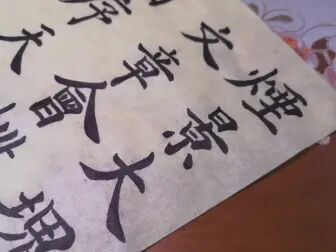 煙景大塊
文章會桃
序天